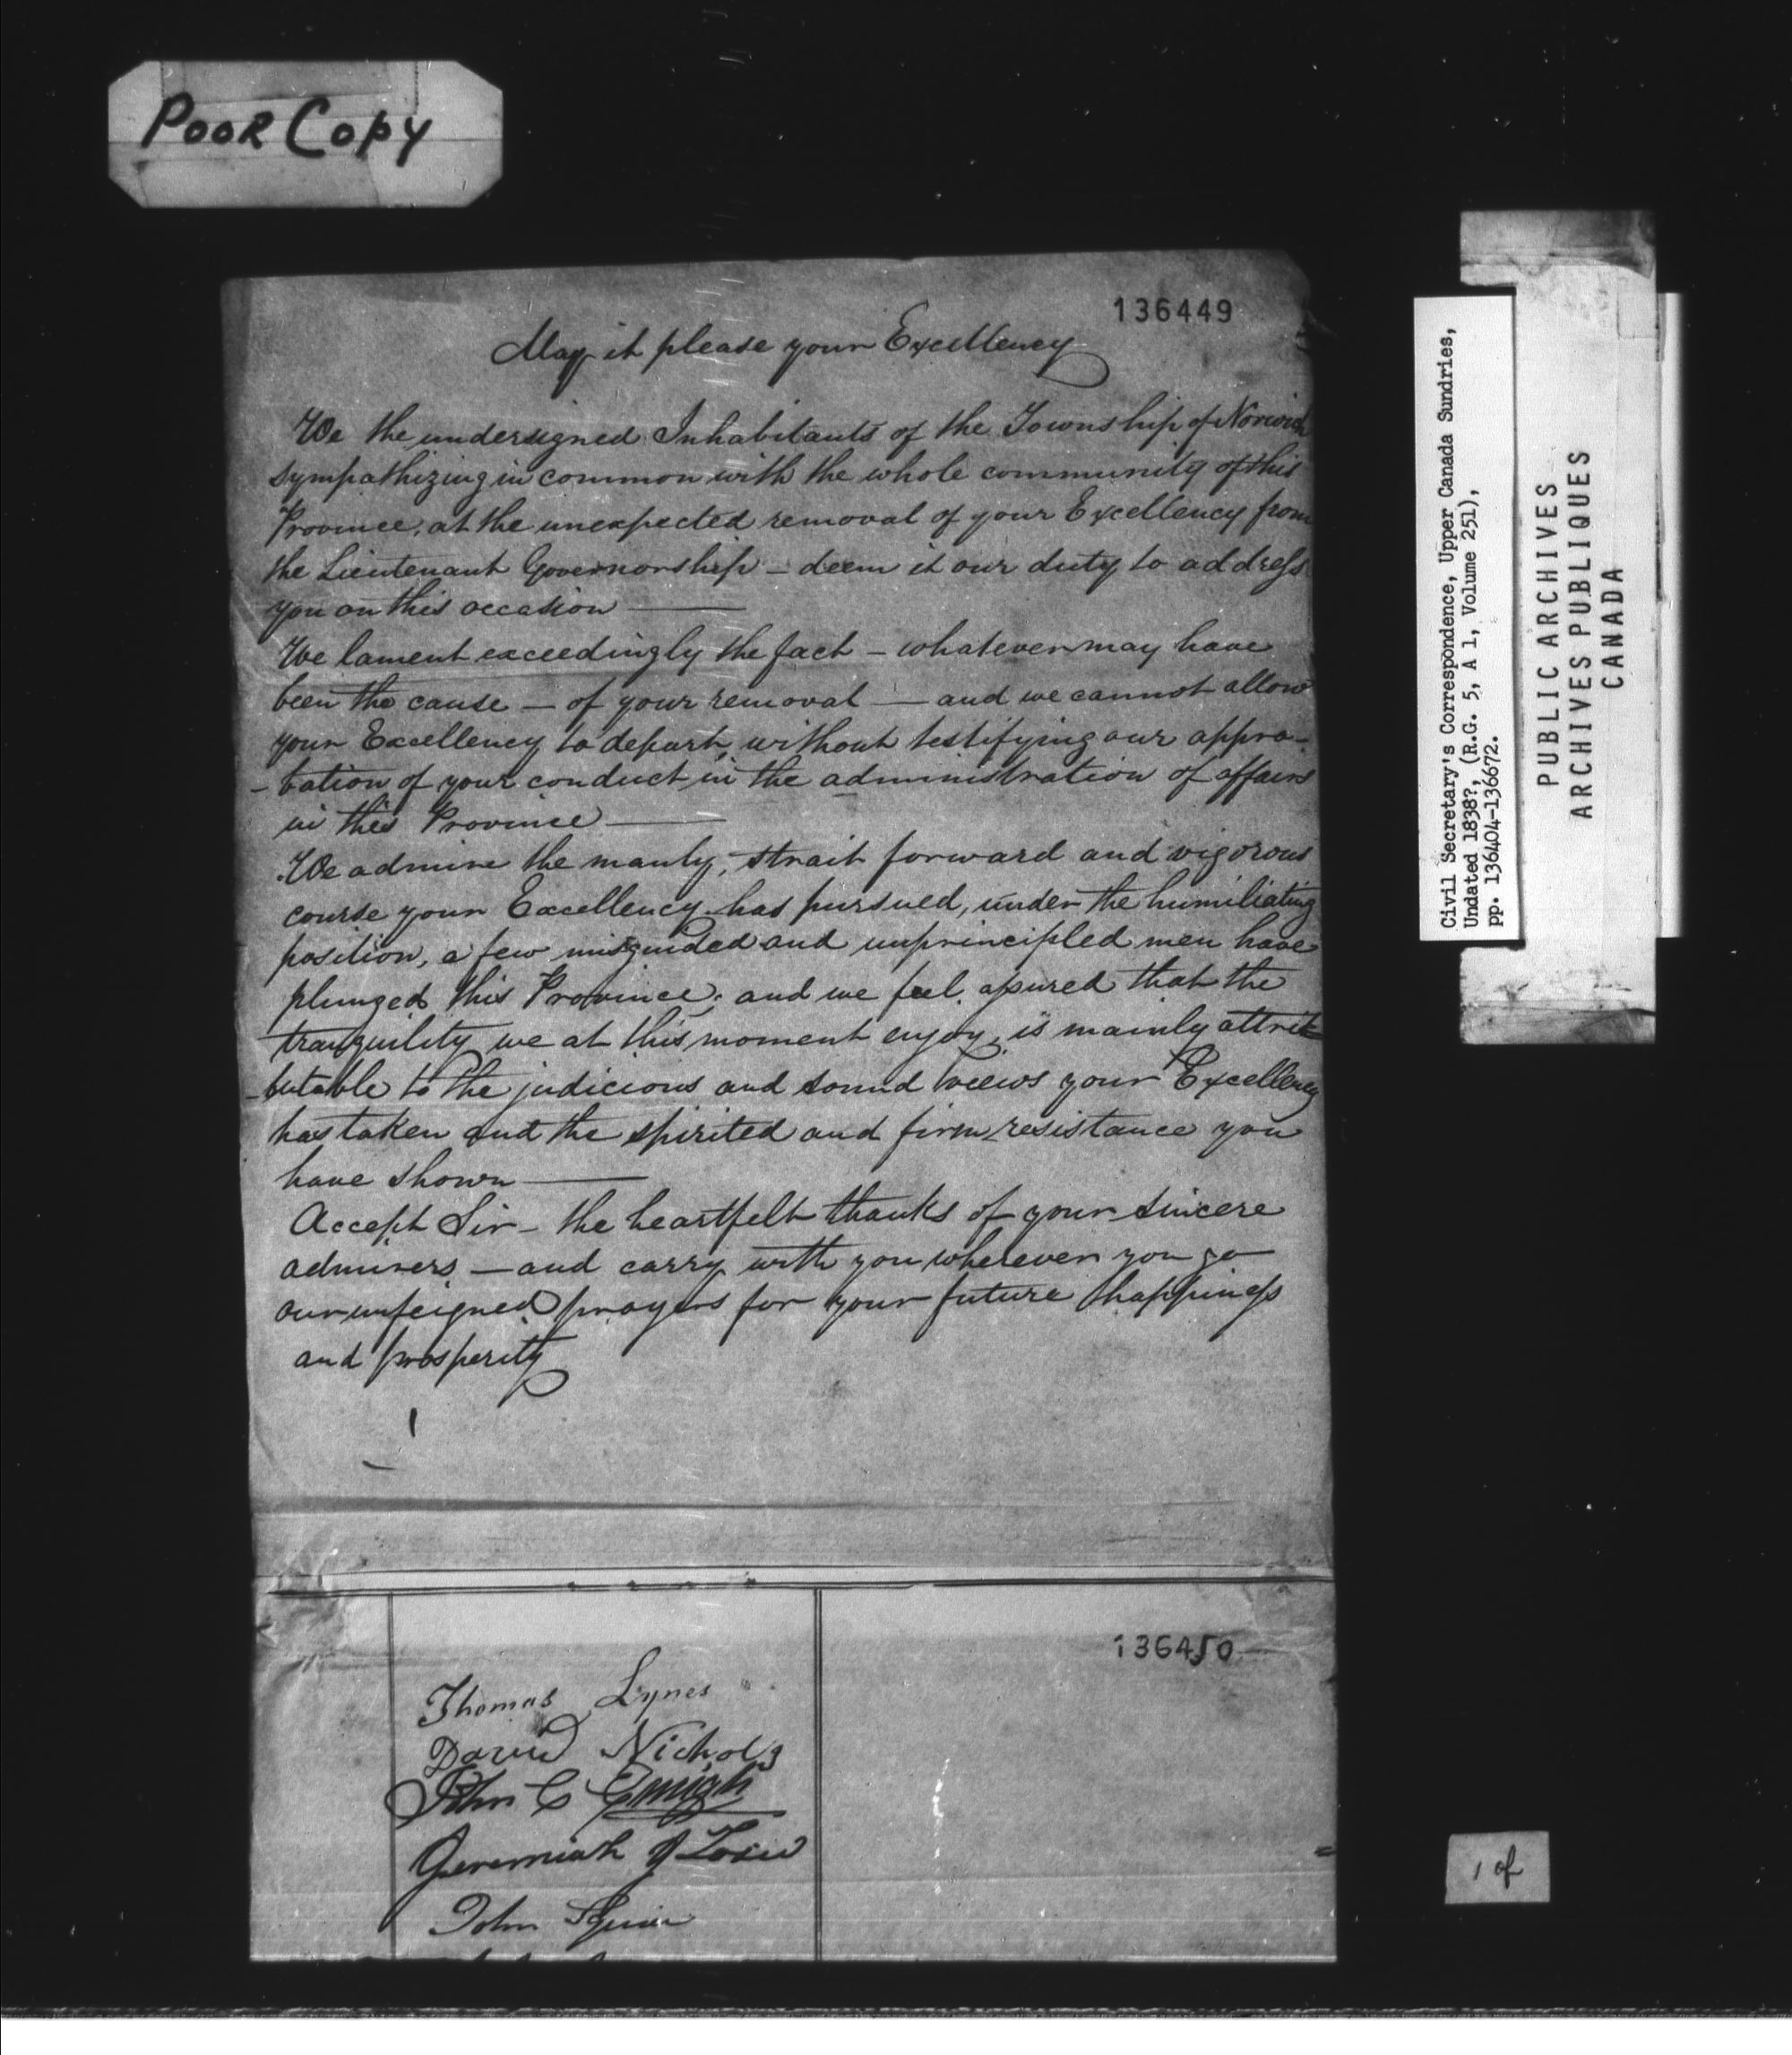 POOR COPY
136449
May it please your Excellency
We the undersigned Inhabitants of the Township of Norwich
sympathizing in common with the whole community of this
Province, at the unexpected removal of your Excellency from
the Lieutenant Governorship – deem it our duty to address
you on this occasion ——
We lament exceedingly the fact – whatever may have
been the cause – of your removal — and we cannot allow
your Excellency to depart, without testifying our appro-
-bation of your conduct in the administration of affairs
in this Province ——
We admire the manly, strait forward and vigorous
course your Excellency has pursued, under the humiliating
position, a few misguided and unprincipled men have
plunged this Province; and we feel assured that the
tranquility we at this moment enjoy, is mainly attri
-butable to the judicious and sound views your Excellency
has taken and the spirited and firm resistance you
have shown ——
Accept Sir – the heartfelt thanks of your sincere
admirers – and carry with you wherever you go
our unfeigned prayers for your future happiness
and prosperity
136450
Thomas Lynes
David Nichols
John C Emigh
Jeremiah
John
Civil Secretary's Correspondence, Upper Canada Sundries,
Undated 1838?, (R.G. 5, A 1, Volume 251),
pp. 136404-136672.
PUBLIC ARCHIVES
ARCHIVES PUBLIQUES
CANADA
1 of